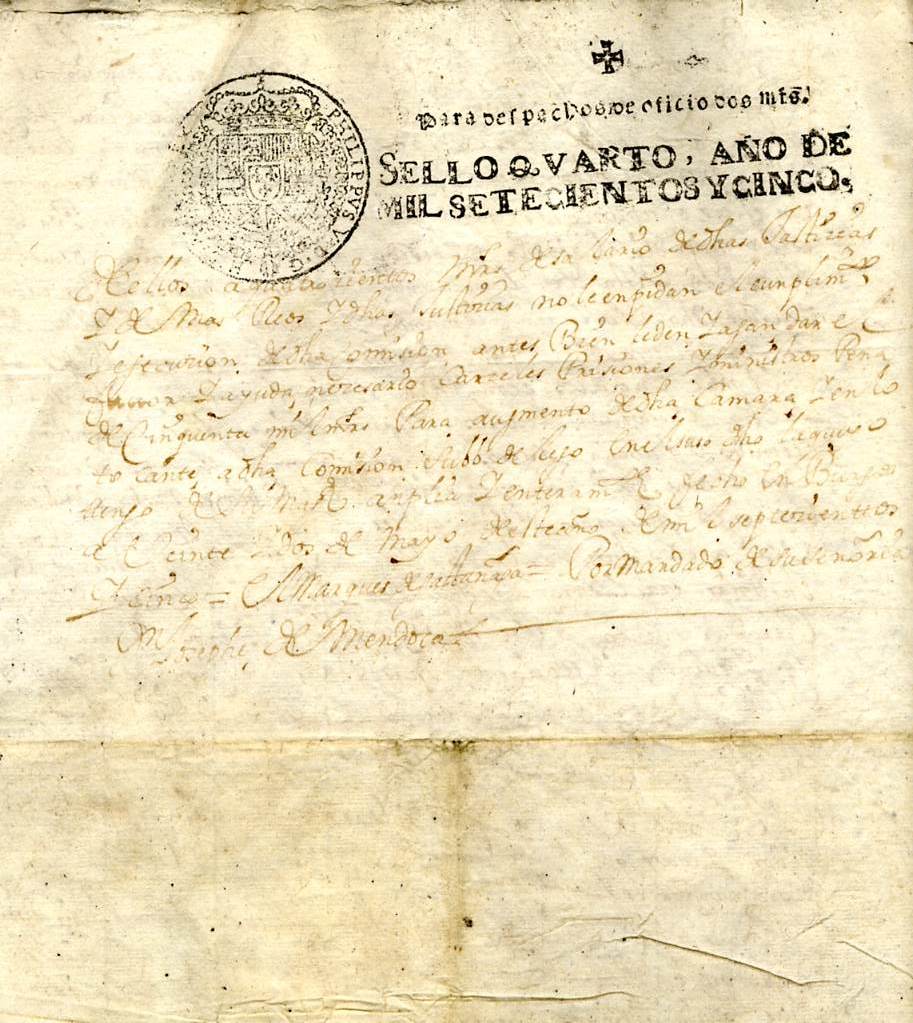 Para despachos de oficio dos mrs.
SELLO QVARTO, AÑO DE
MIL SETECIENTOS Y CINCO.
PHILIPPVS V D G
dellos a quatrocientos mrs de salario dedhas Justicias
Y de mas Reos Y dhas Justicias no le enpidan el cunplimto
Y esecucion dedha comision antes Bien le den Y agan dar el
favor Y ayuda necesario Carceles Prisiones Y ministros Pena
de Cinquenta mil mrs Para augmento dedha Camara Y en lo
tocante adha Comision Subdelego en el suso dho la que
tengo de su Magd anplia Y enteramte fecho en Burgos
a Veinte Y dos de Mayo deste año de mil septecientos
Y cinco = El Marques de = Por Mandado de su Señoria
Joseph de Mendoca